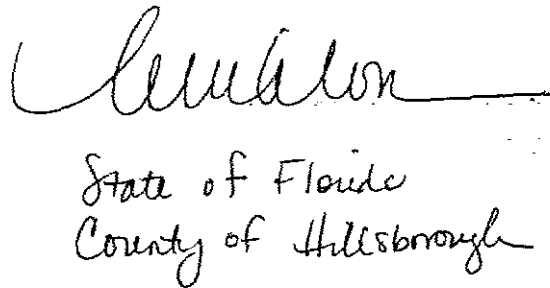 State of Florida
County of Hillsborough